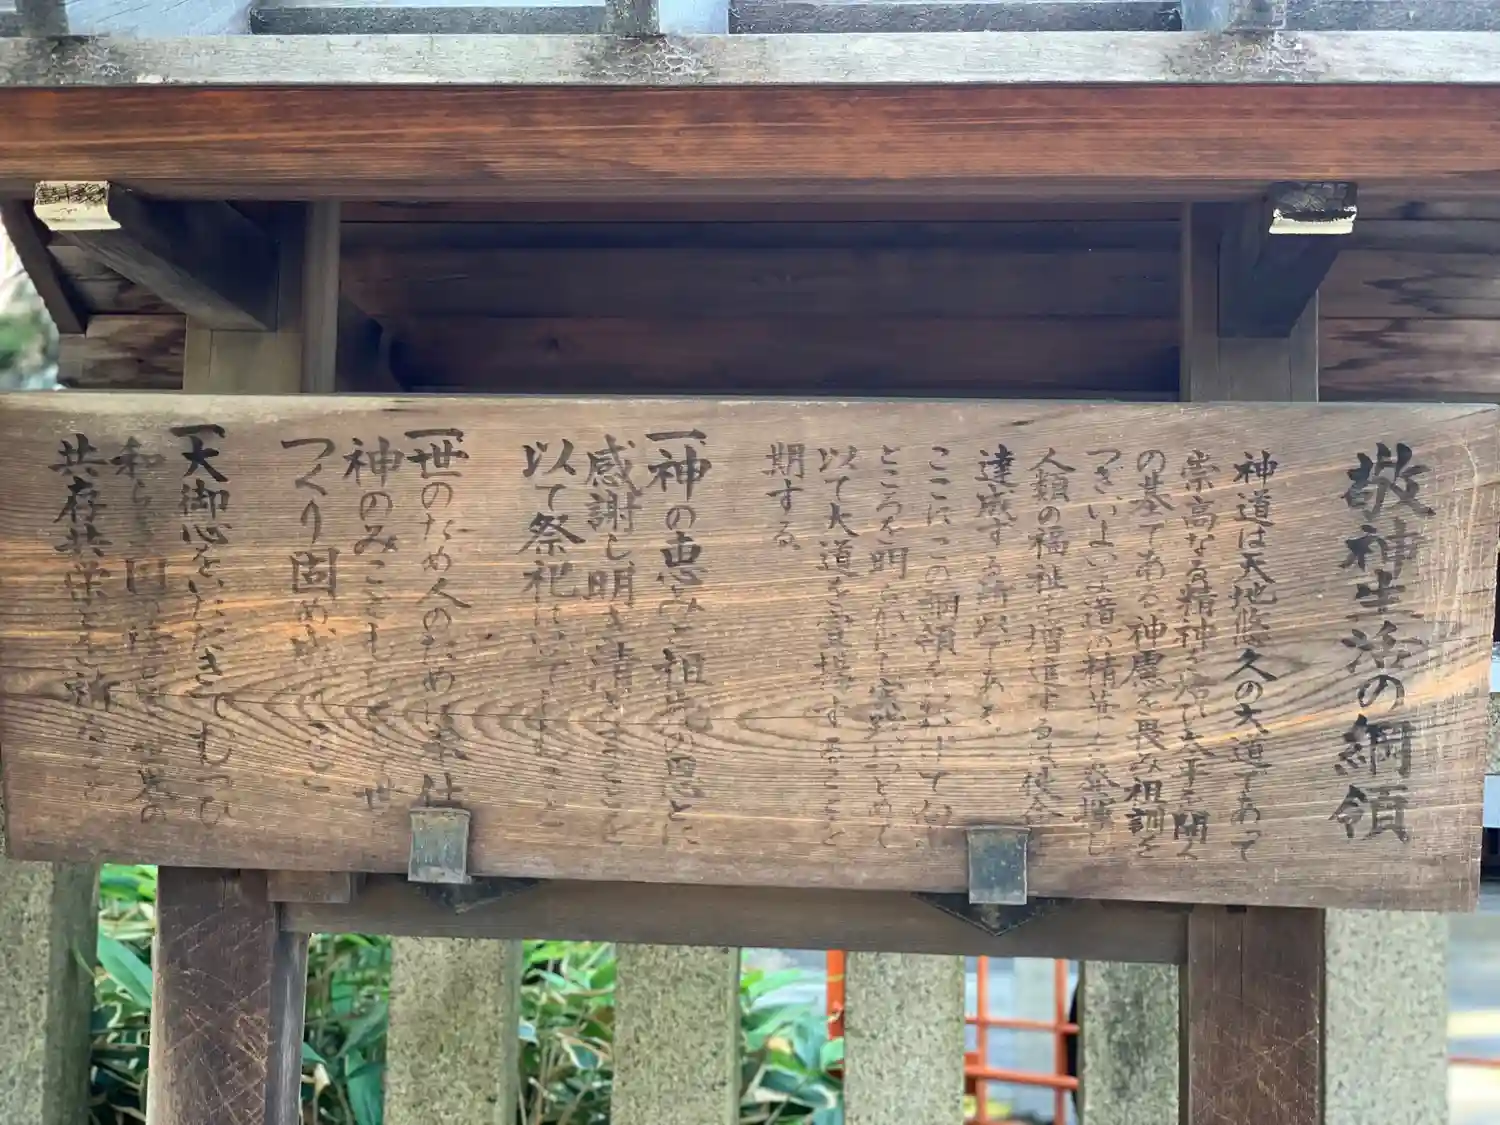 敬神生活の綱領
神道は天地悠久の大道であって
崇高なる精神を培ひ太平を開く
の基である神慮を畏み祖訓を
つぎいよいよ道の精華を発揮し
人類の福祉を増進するは使命
達成する所以である
ここにこの綱領をかかげて向ふ
ところを明らかにし実践につとめて
以て大道を宣揚することを
期する
一神の恵みと祖先の恩とに
感謝し明き清きまことを
以て祭祀にいそしむこと
一世のため人のために奉仕し
神のみこともちとして世を
つくり固め成すこと
一大御心をいただきてむつび
和らぎ国の隆昌と世界の
共存共栄とを祈ること